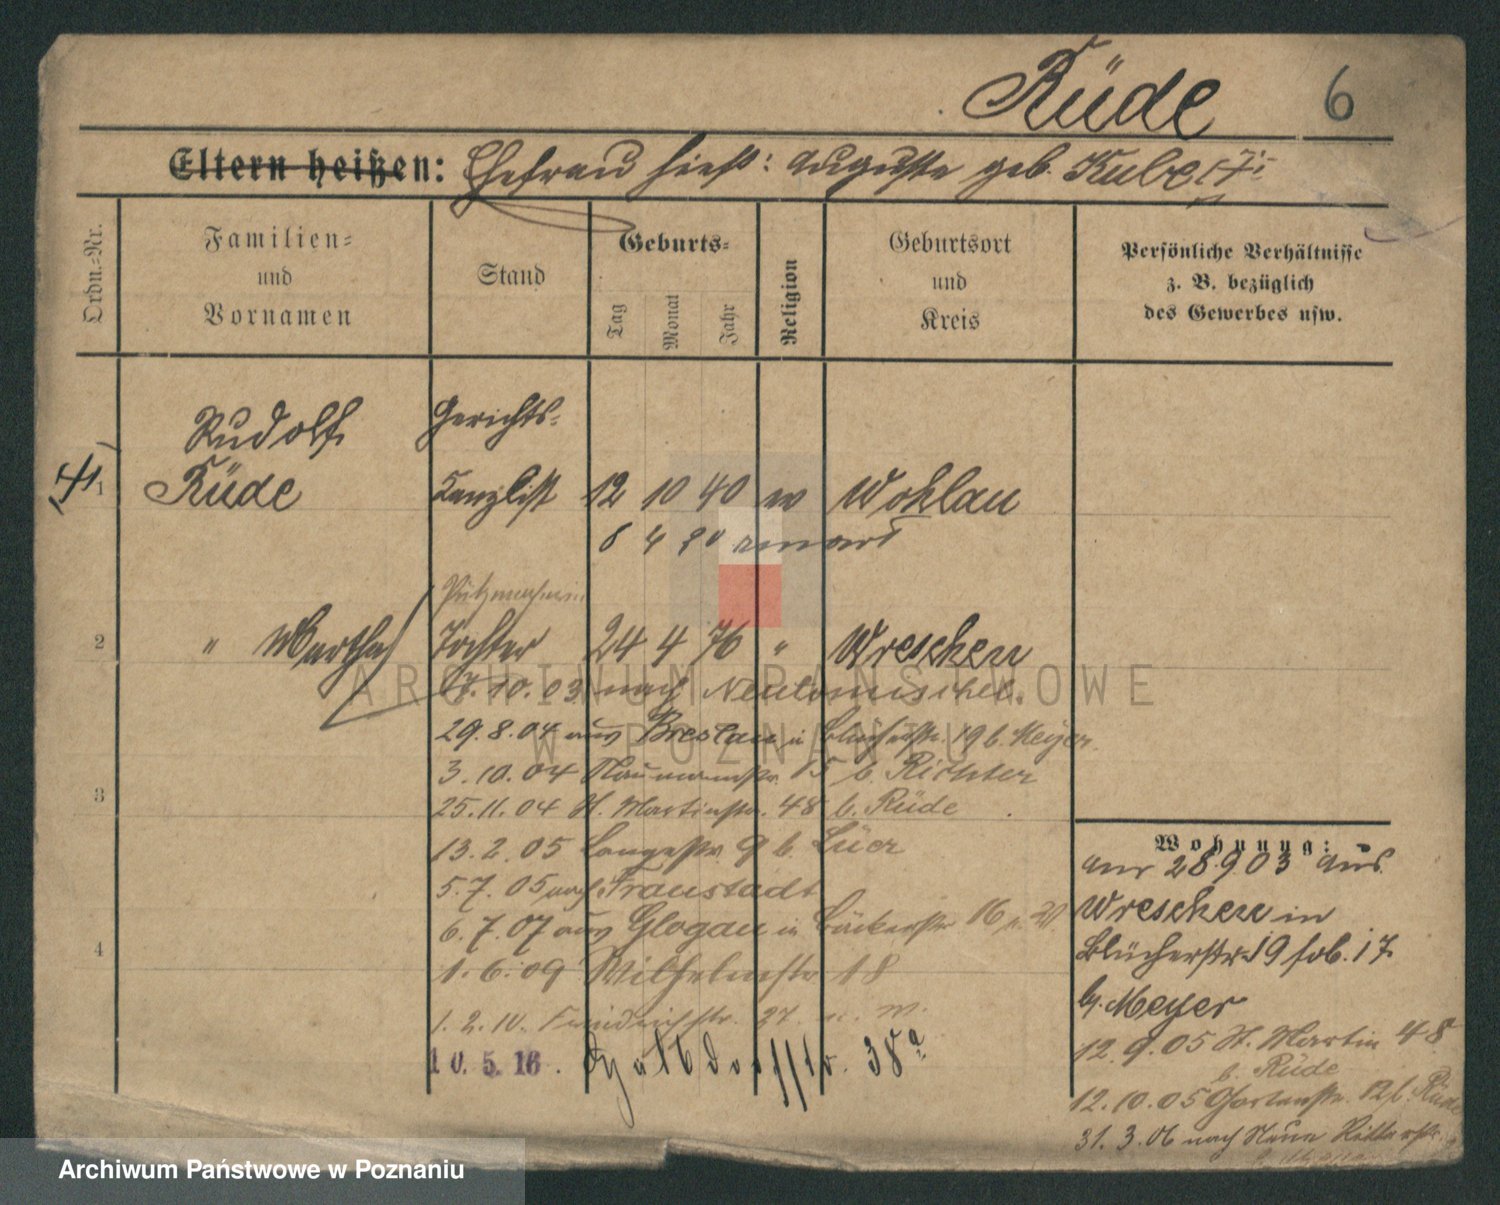 Rüde 6
Eltern heißen: Ehefrau hieß: Auguste geb. Kube
Ordn.-Nr.
Familien-
und
Vornamen
Stand
Geburts-
Tag
Monat
Jahr
Religion
Geburtsort
und
Kreis
Persönliche Verhältnisse
z. B. bezüglich
des Gewerbes usw.
Rudolf Gerichts-
1 Rüde Kanzlist 12 10 40 ev Wohlau
Putzmacherin
2 " Martha Tochter 24 4 76 " Wreschen
17.10.03 nach Neutomischel.
29.8.04 aus Breslau in Blücherstr. 19 b. Meyer.
3 3.10.04 Naumannstr. 15 b. Richter
25.11.04 St. Martinstr. 48 b. Rüde
13.2.05 Langestr. 9 b. Lüer
5.7.05 nach Fraustadt
4 6.7.07 aus Glogau in Bäckerstr 16
1.6.09 Wilhelmstr 18
1.2.10. Friedrichstr. 27.
10.5.16.
38a
Wohnung:
28.9.03 aus
Wreschen in
Blücherstr. 19
b. Meyer
12.9.05 St. Martin 48
b. Rüde
12.10.05 Gartenstr. 12 b. Rüde
31.3.06 nach Neue
ARCHIWUM PAŃSTWOWE
W POZNANIU
Archiwum Państwowe w Poznaniu